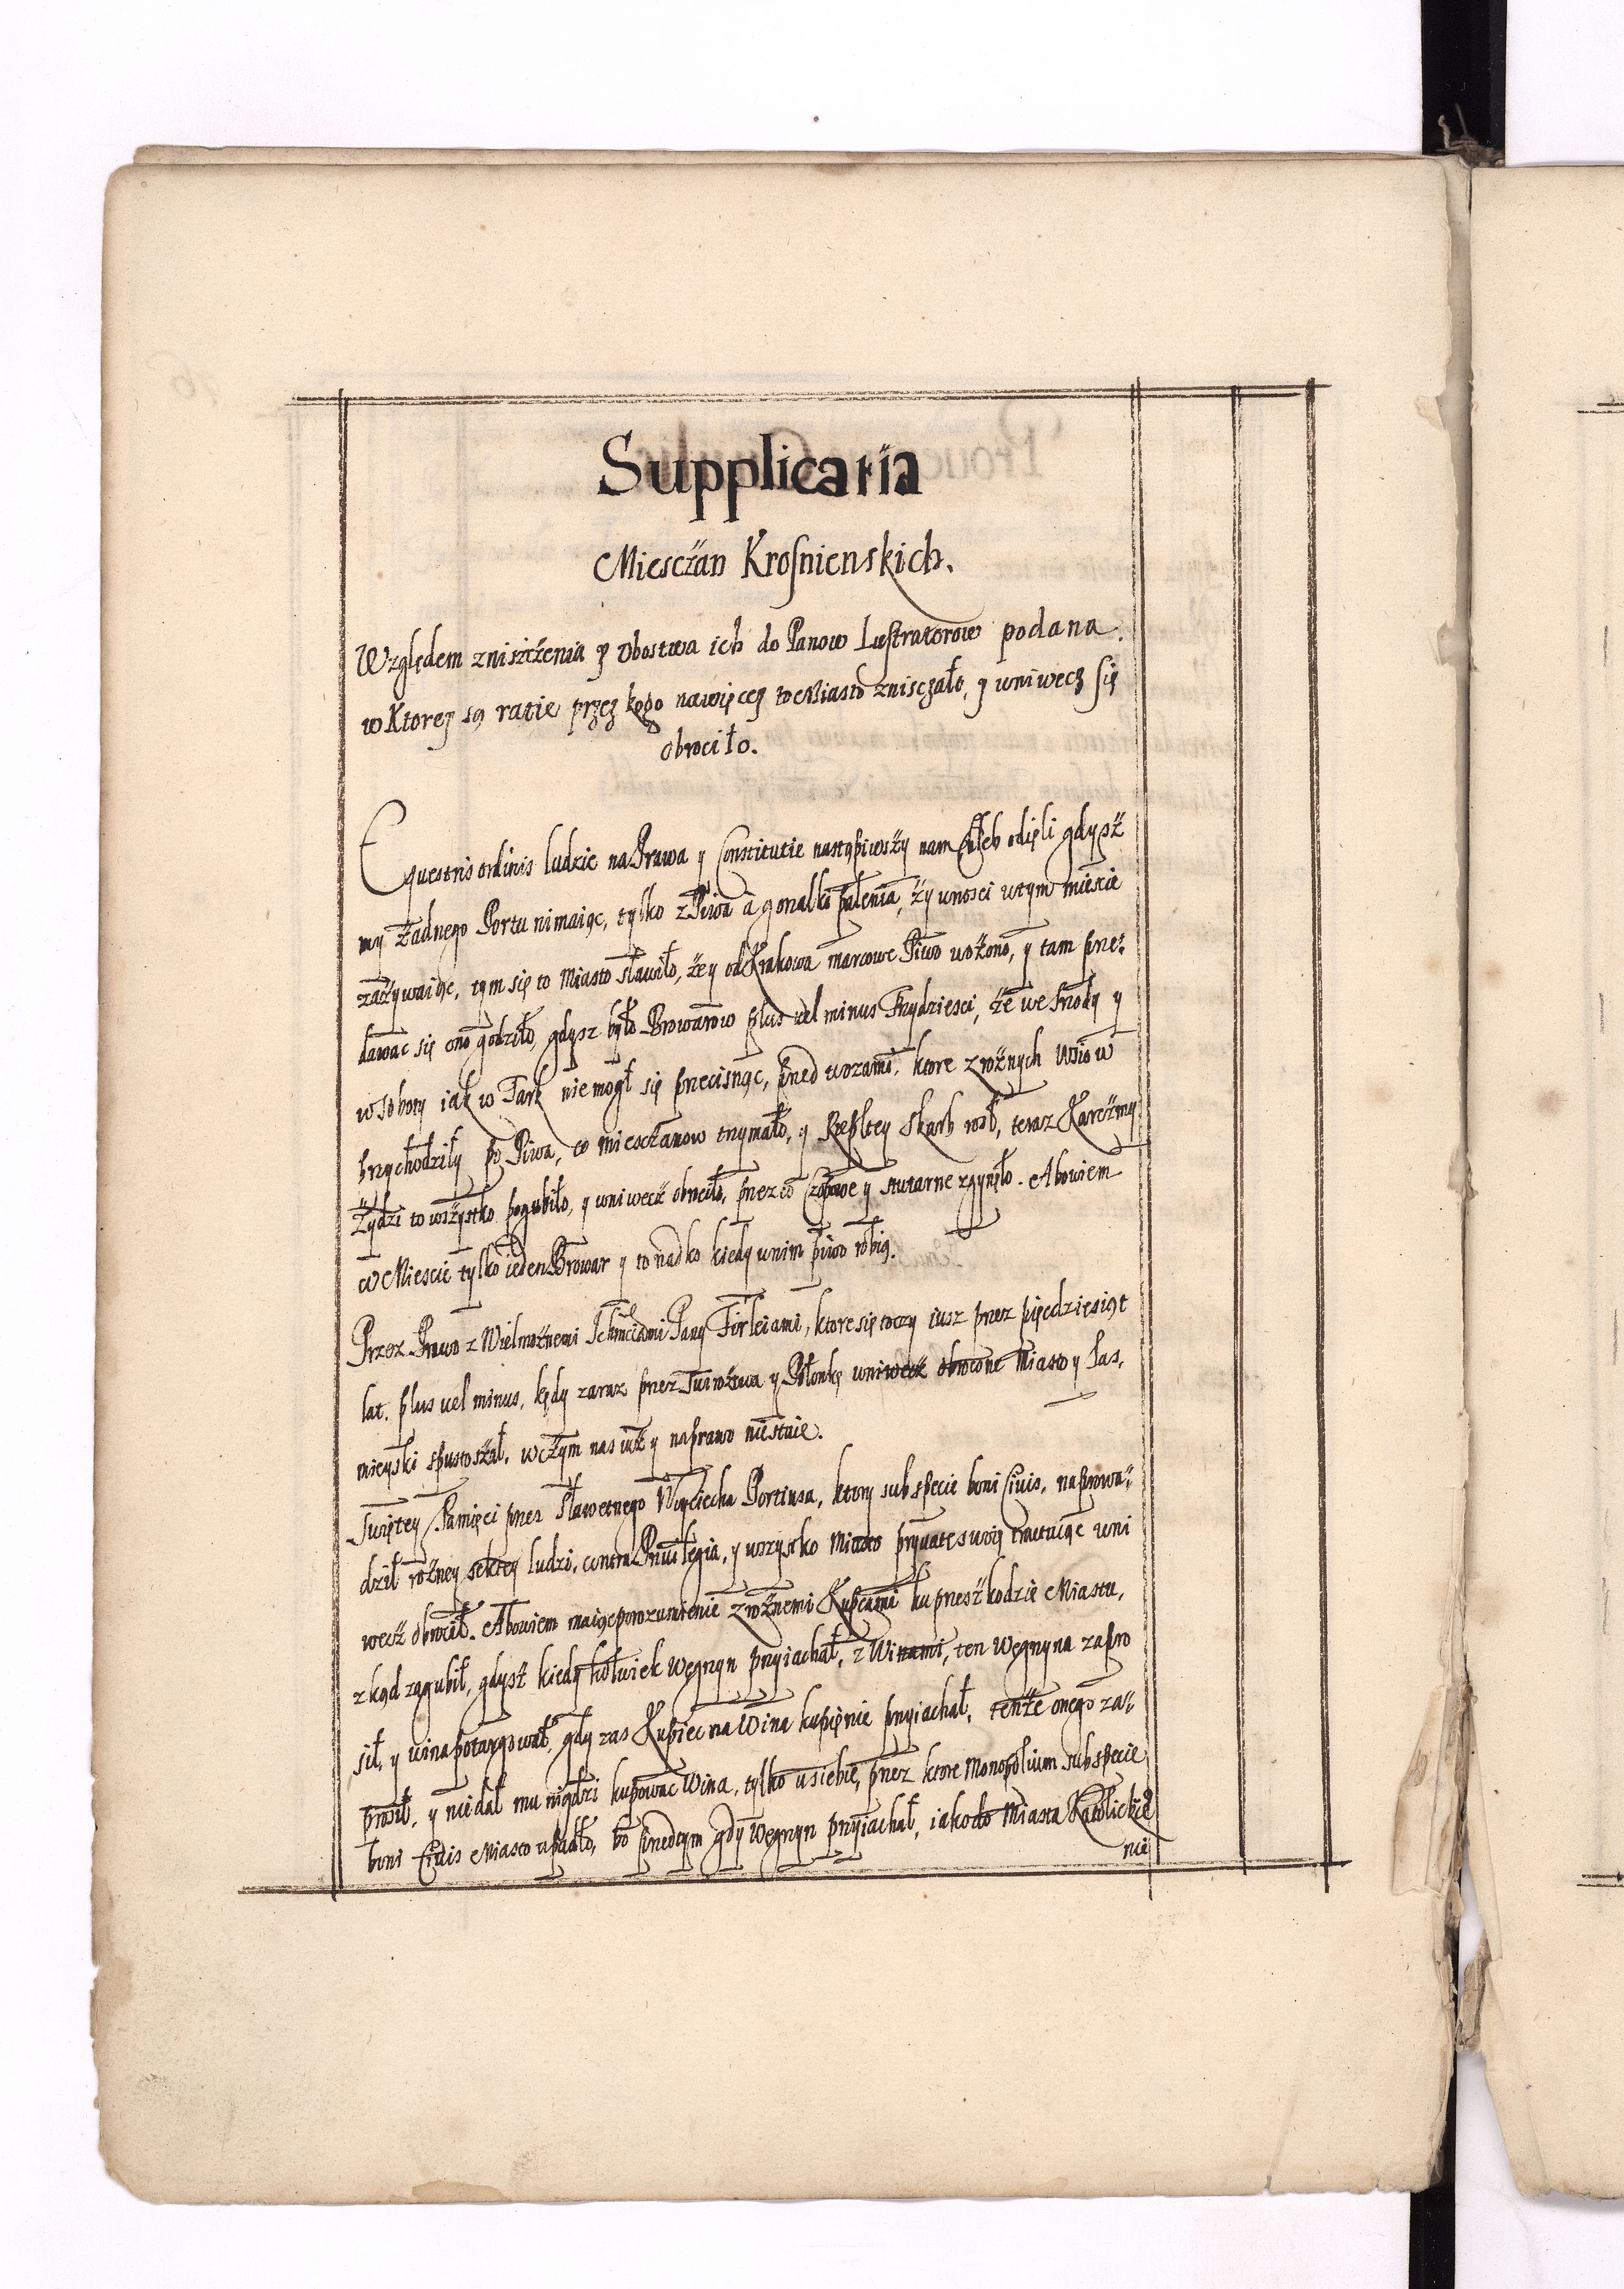 Supplicatia
Miesczan Krosnienskich.
Względem zniszczenia y Vbostwa ich do Panow Lustratorow podana.
w Ktorey są ratie przez kogo nawięcey to Miasto zniszczało, y wniwecz się
obrociło.
Equestris ordinis ludzie na Prawa y Constitutie nastąpiwszy nam Chleb odieli gdysz
my żadnego Portu nimaiąc, tylko z Piwa a gorzałki palenia, żywnosci wtym miescie
zażywaiąc, tym się to Miasto sławiło, że y od Krakowa marcowe Piwo wożono, y tam prze-
dawac się ono godziło, gdysz było Browarow plus vel minus Trzydziesci, że we Srzody y
w Soboty iak w Targ nie mogł się przecisnąc, przed wozami, ktore z rożnych Wsiow
przychodziły po Piwa, co miesczanow trzymało, y Rzepltey Skarb rosł, teraz Karczmy
Żydzi to wszystko pogubiło, y wniwecz obrociło, przez co Czopowe y szutarne zgynęło. Abowiem
w Miescie tylko ieden Browar y to rzadko kiedy w nim piwo robią.
Przez Prawo z Wielmożnemi Ichmciami Pany Firleiami, ktore się toczy iusz przez pięcdziesiąt
lat. plus vel minus, kędy zaraz przez Swirzowa y Połonkę wniwecz obrocone Miasto y Las,
mieyski spustoszał, wczym nas iuż y na prawo niestaie.
Swiętey Pamięci przez Sławetnego Woyciecha Portiusa, ktory sub specie boni Civis, naprowa-
dził rożney sektey ludzi, contra Privilegia, y wszystko Miasto prywatę swoię tractuiąc wni
wecz obrocił. Abowiem maiąc porozumienie z rożnemi Kupcami ku przeszkodzie Miastu,
z kąd zagubił, gdysz kiedykolwiek Węgrzyn przyiachał, z Winami, ten Węgrzyna zapro
sił, y wina potargował, gdy zas Kupiec na Wina kupięnie przyiachał, tenże onego za-
prosił, y niedał mu nigdzi kupowac Wina, tylko u siebie, przez ktore Monopolium sub specie
boni Civis Miasto upadło, bo przedtym gdy Węgrzyn przyiachał, iako do Miasta Katolickie
nie